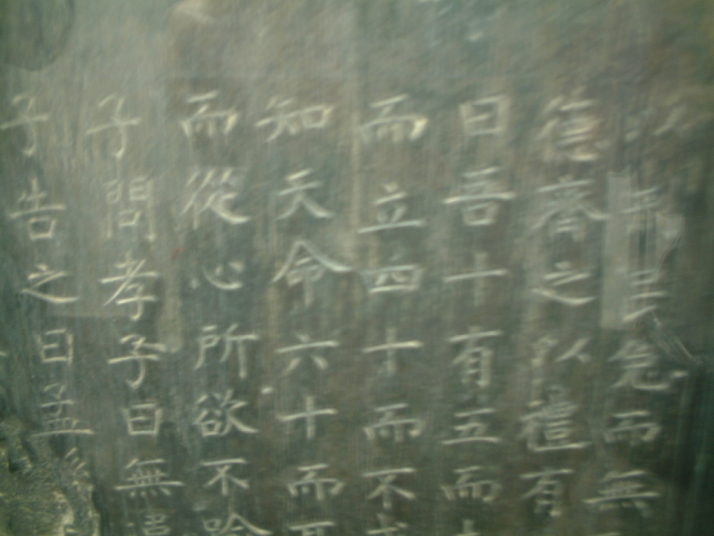 民免而無
德齊之以禮有
曰吾十有五而
而立四十而不
知天命六十而
而從心所欲不踰
子問孝子曰無違
子告之曰孟孫